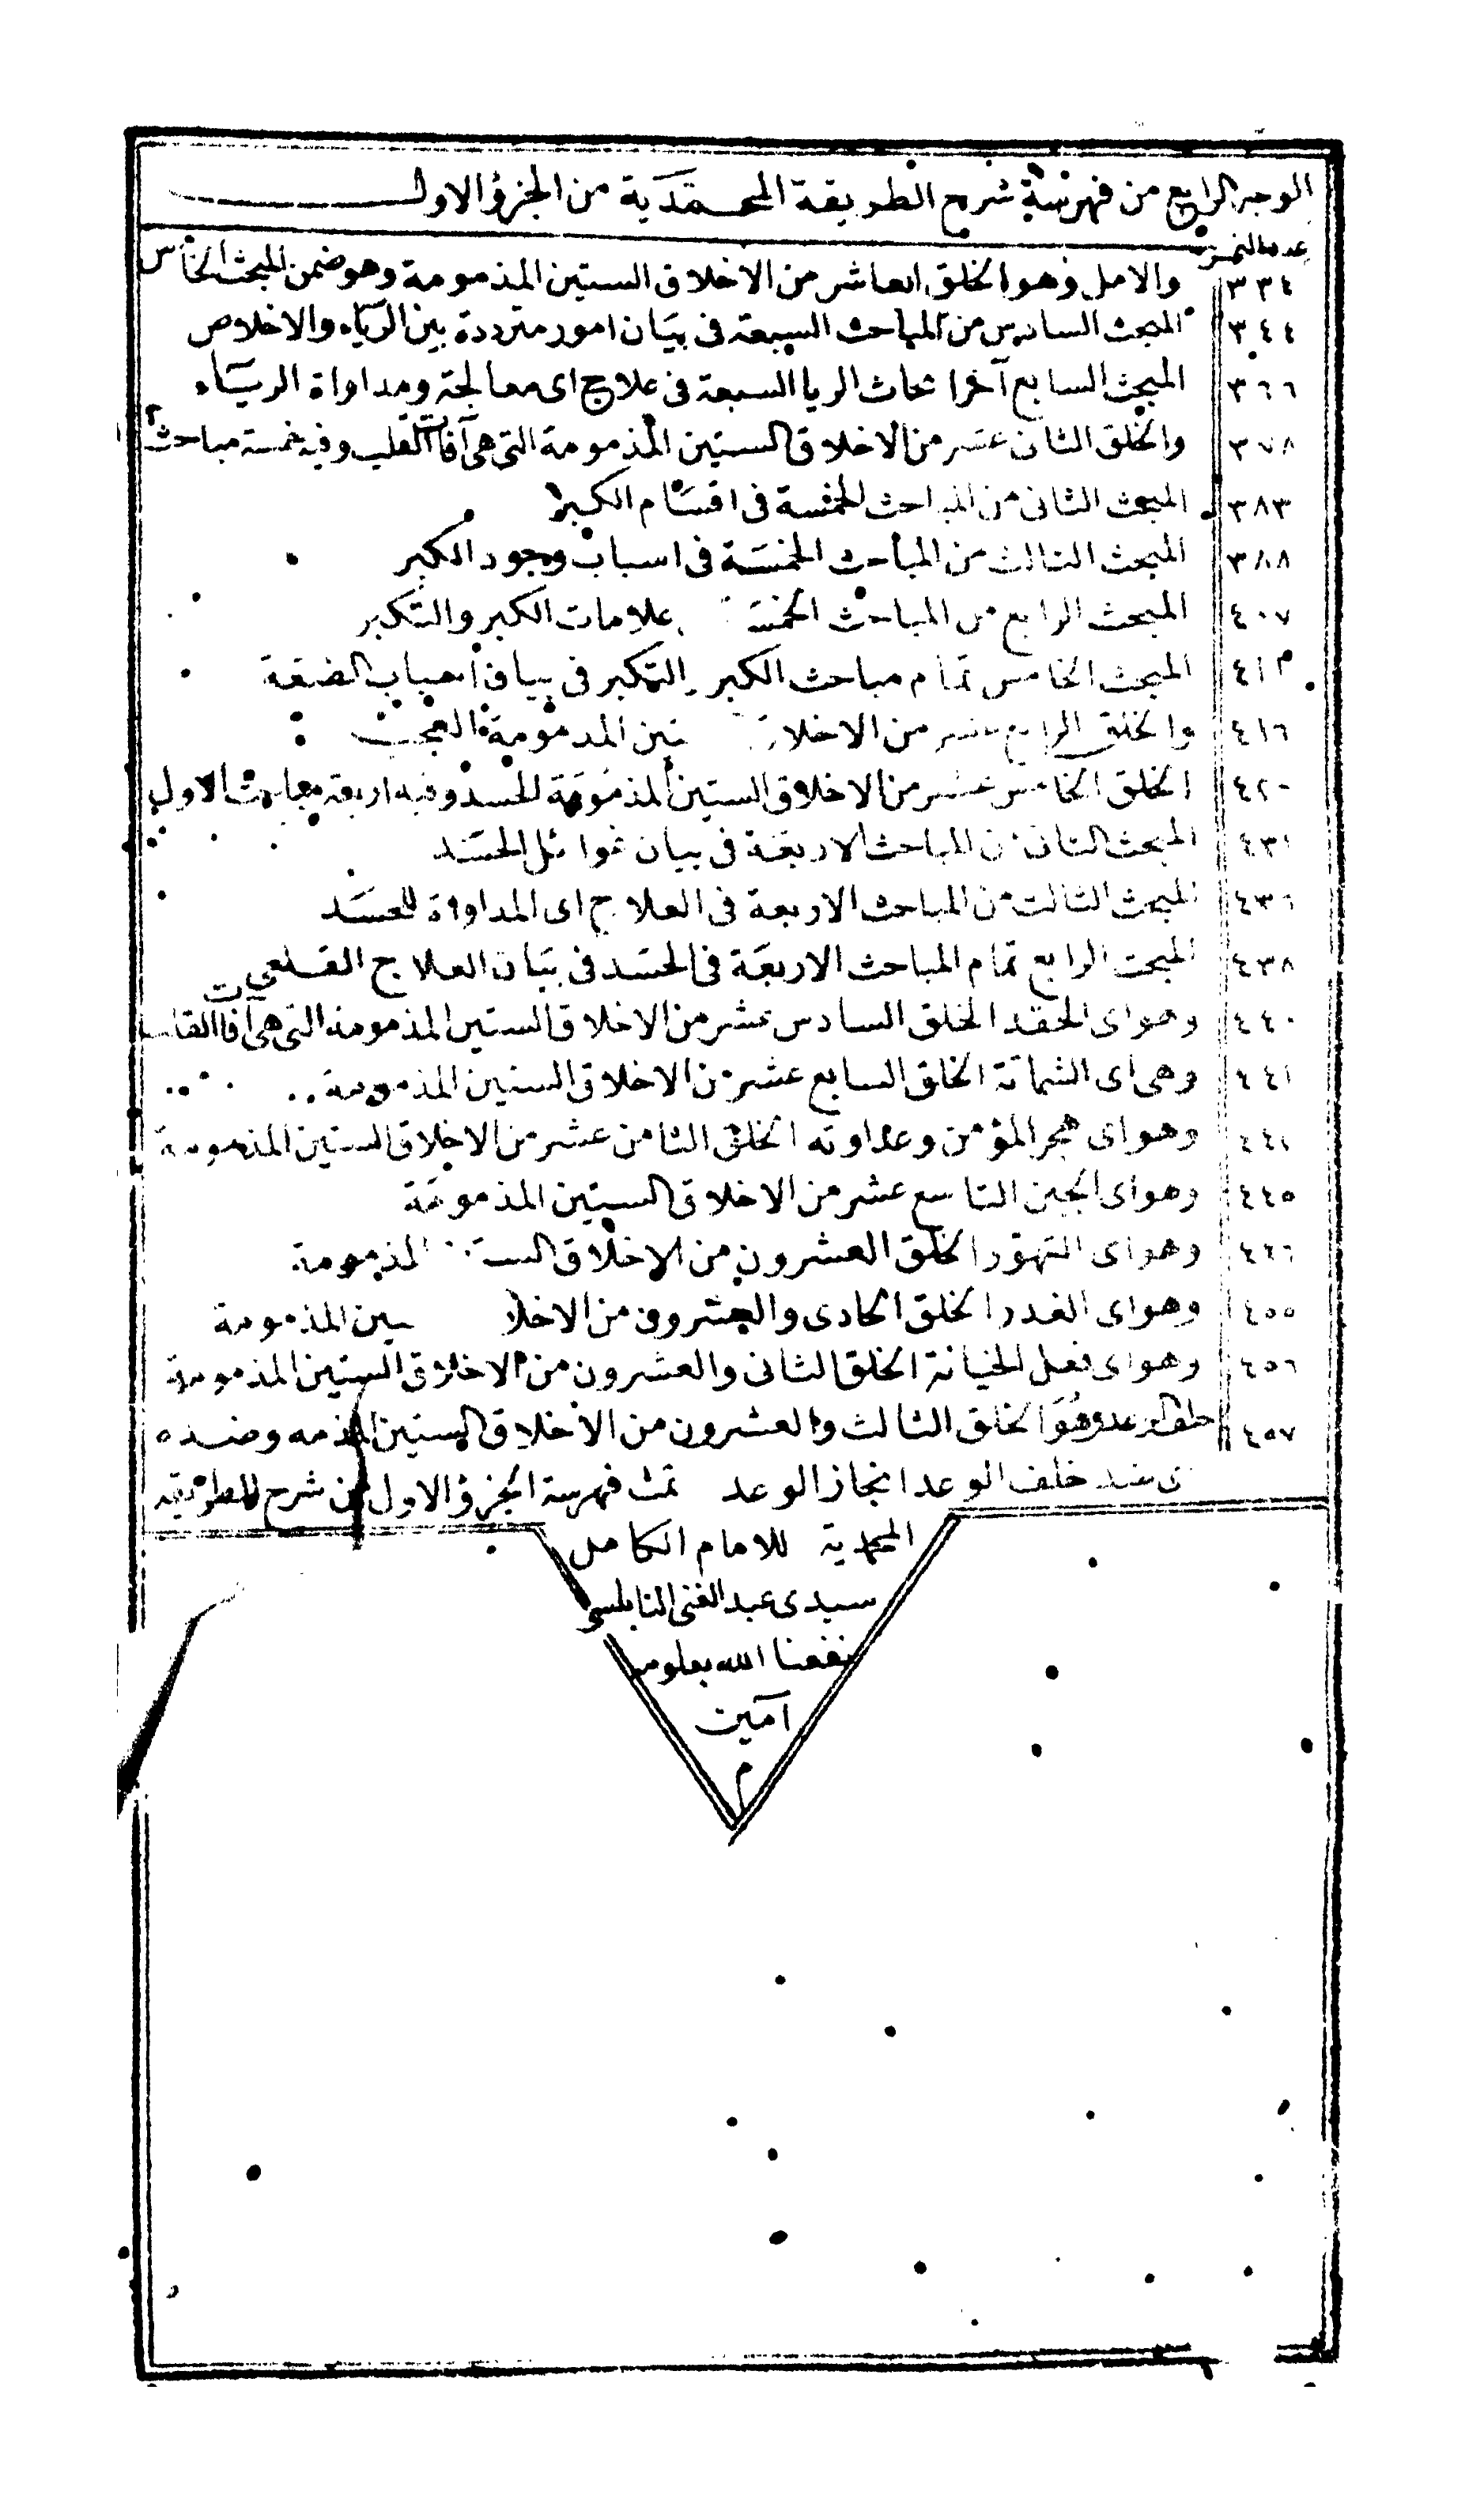 الوجه الرابع من فهرسة شرح الطريقة المحمدية من الجزؤ الاول
عدد النمر
٣٣٤ والامل وهو الخلق العاشر من الاخلاق الستين المذمومة وهو ضمن المبحث الخامس
٣٤٤ المبحث السادس من المباحث السبعة فى بيان امور مترددة بين الرياء والاخلاص
٣٦٦ المبحث السابع آخر ابحاث الريا السبعة فى علاج اى معالجة ومداواة الرياء
٣٧٨ والخلق الثانى عشر من الاخلاق الستين المذمومة التى هى آفات القلب وفيه خمسة مباحث
٣٨٣ المبحث الثانى من المباحث الخمسة فى اقسام الكبر
٣٨٨ المبحث الثالث من المباحث الخمسة فى اسباب وجود الكبر
٤٠٧ المبحث الرابع من المباحث الخمسة علامات الكبر والتكبر
٤١٣ المبحث الخامس تمام مباحث الكبر والتكبر فى بيان اسباب الضعة
٤١٦ والخلق الرابع عشر من الاخلا تين المذمومة العجب
٤٢٠ الخلق الخامس عشر من الاخلاق الستين المذمومة الحسد وفيه اربعة مباحث الاول
٤٣١ المبحث الثانى من المباحث الاربعة فى بيان غوائل الحسد
٤٣٦ المبحث الثالث من المباحث الاربعة فى العلاج اى المداواة للحسد
٤٣٨ المبحث الرابع تمام المباحث الاربعة فى الحسد فى بيان العلاج القلعى
٤٤٠ وهو اى الحقد الخلق السادس عشر من الاخلاق الستين المذمومة التى هى آفات القلب
٤٤١ وهى اى الشماتة الخلق السابع عشر من الاخلاق الستين المذمومة
٤٤١ وهو اى هجر المؤمن وعداوته الخلق الثامن عشر من الاخلاق الستين المذمومة
٤٤٥ وهو اى الجبن التاسع عشر من الاخلاق الستين المذمومة
٤٤٦ وهو اى التهور الخلق العشرون من الاخلاق الست المذمومة
٤٥٥ وهو اى الغدر الخلق الحادى والعشرون من الاخلا ين المذمومة
٤٥٦ وهو اى فعل الخيانة الخلق الثانى والعشرون من الاخلاق الستين المذمومة
٤٥٧ خلف الوعد وهو الخلق الثالث والعشرون من الاخلاق الستين المذمه وضده
اى ضد خلف الوعد انجاز الوعد تمت فهرسة الجزؤ الاول من شرح الطريقه
المحمدية للامام الكامل
سيدى عبد الغنى النابلسى
نفعنا الله بعلومه
آمين
م